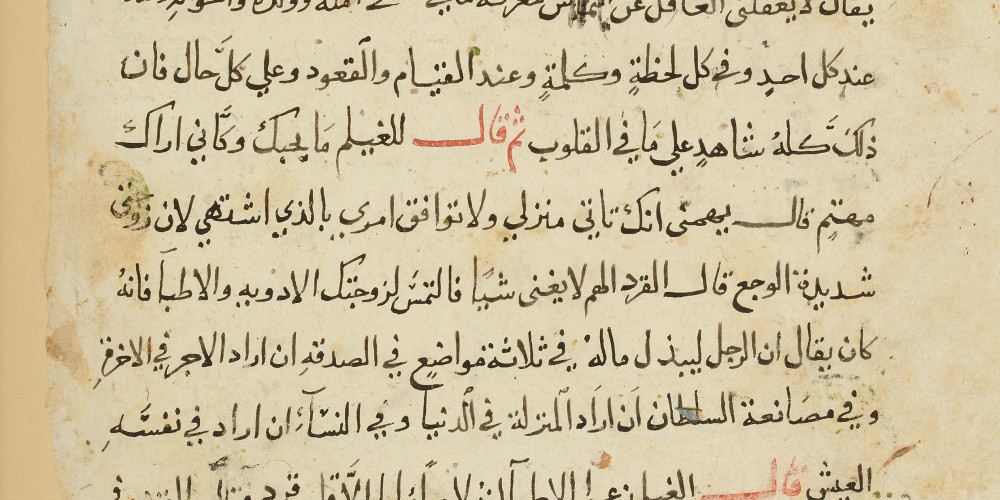 يقال لا يغفلن العاقل عن التماس معرفة ما في
عند كل احدٍ وفي كل لحظةٍ وكلمةٍ وعند القيام والقعود وعلي كلّ حال فان
ذلك كلهُ شاهدٍ علي ما في القلوب ثم قال للغيلم ما يحبك وكاني اراك
مهتم قال يهمني انك تاتي منزلي ولا توافق امري بالذي اشتهي لان زوجتي
شديدة الوجع قال القرد الهم لا يغني شيا فالتمس لزوجتك الادويه والاطبا فانهُ
كان يقال ان الرجل ليبذل ماله في ثلاثة مواضع في الصدقه ان اراد الاجر في الاخرة
وفي مصانعة السلطان ان اراد المنزلة في الدنيا وفي النسآء ان اراد في نفسه
العيش قال الغيلم